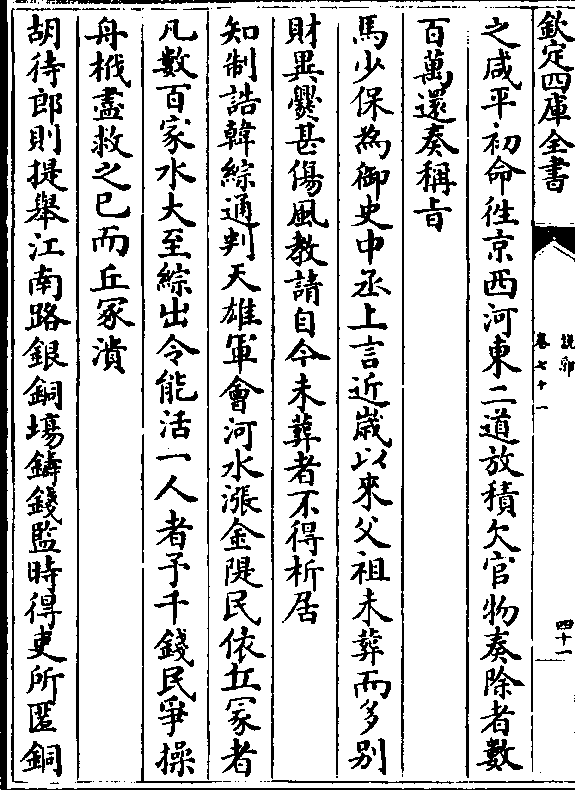 欽定四庫全書
說郛
卷七十一
四十一
之咸平初命徃京西河東二道放積欠官物奏除者數
百萬還奏稱旨
馬少保為御史中丞上言近歳以來父祖未葬而多别
財異爨甚傷風教請自今未葬者不得析居
知制誥韓綜通判天雄軍會河水漲金隄民依丘冢者
凡數百家水大至綜出令能活一人者予千錢民爭操
舟栰盡救之已而丘冢潰
胡待郎則提舉江南路銀銅塲鑄錢監時得吏所匿銅